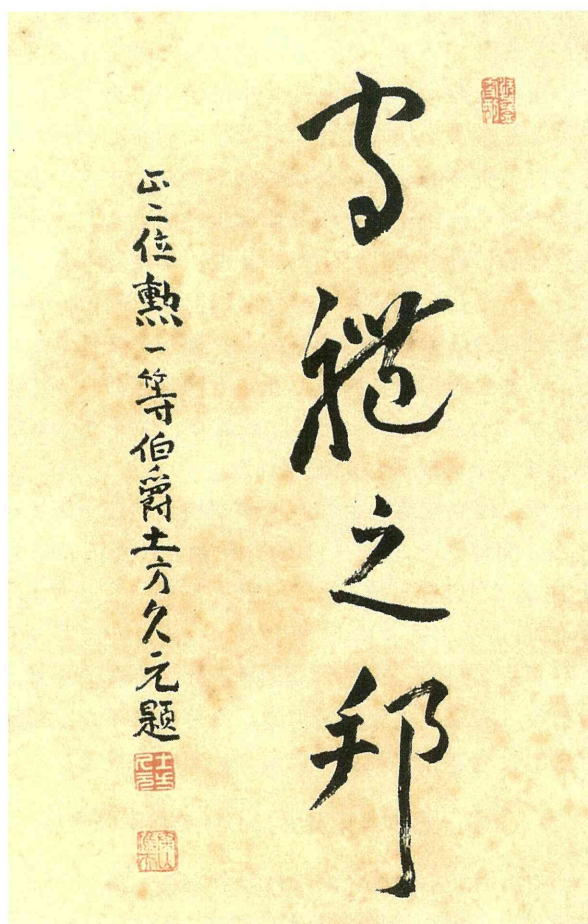 守禮之邦
正二位勲一等伯爵土方久元題
土方久元